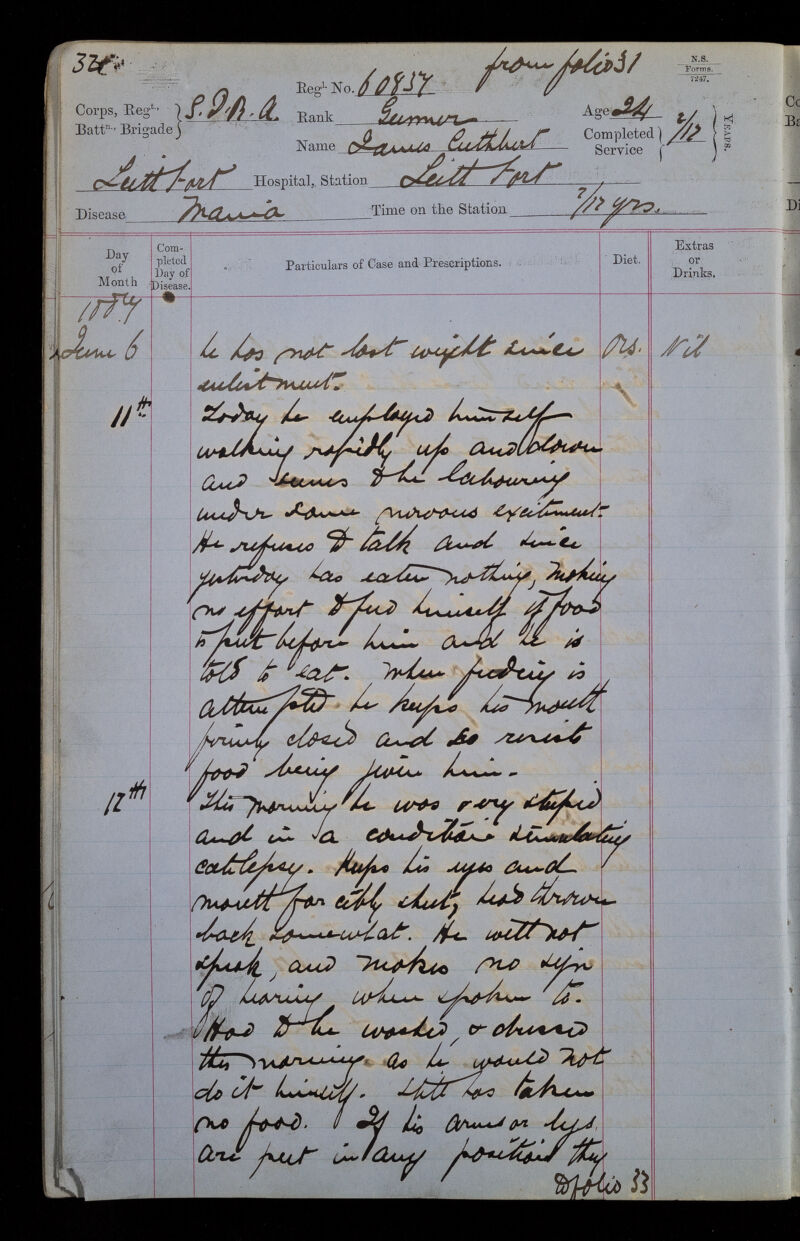 32
from folio 31
N.S.
Forms.
7247.
Regl. No. 60837
Corps, Regt., Battn., Brigade } S.D.R.A.
Rank Gunner
Age 24
Name James Cuthbert
Completed Service } 2/12 { Years.
Leith Fort Hospital, Station Leith Fort
Disease Mania Time on the Station 2/12 yrs.
Day of Month
Completed Day of Disease.
Particulars of Case and Prescriptions.
Diet.
Extras or Drinks.
1887
June 6 he has not lost weight since Nil
enlistment.
11th Today he employed himself
walking rapidly up and down
and seems to be labouring
under some nervous excitement.
He refuses to talk and since
yesterday has eaten nothing, making
no effort to feed himself if food
is put before him and he is
told to eat. When feeding is
attempted he keeps his mouth
firmly closed and so resists
food being given him.
12th This morning he was very stupid
and in a condition simulating
catilepsy. Keeps his eyes and
mouth forcibly shut, head thrown
back somewhat. He will not
speak, and makes no sign
of hearing when spoken to.
Had to be washed & dressed
this morning as he would not
do it himself. Still has taken
no food. If his arms or legs
are put in any position they
to folio 33